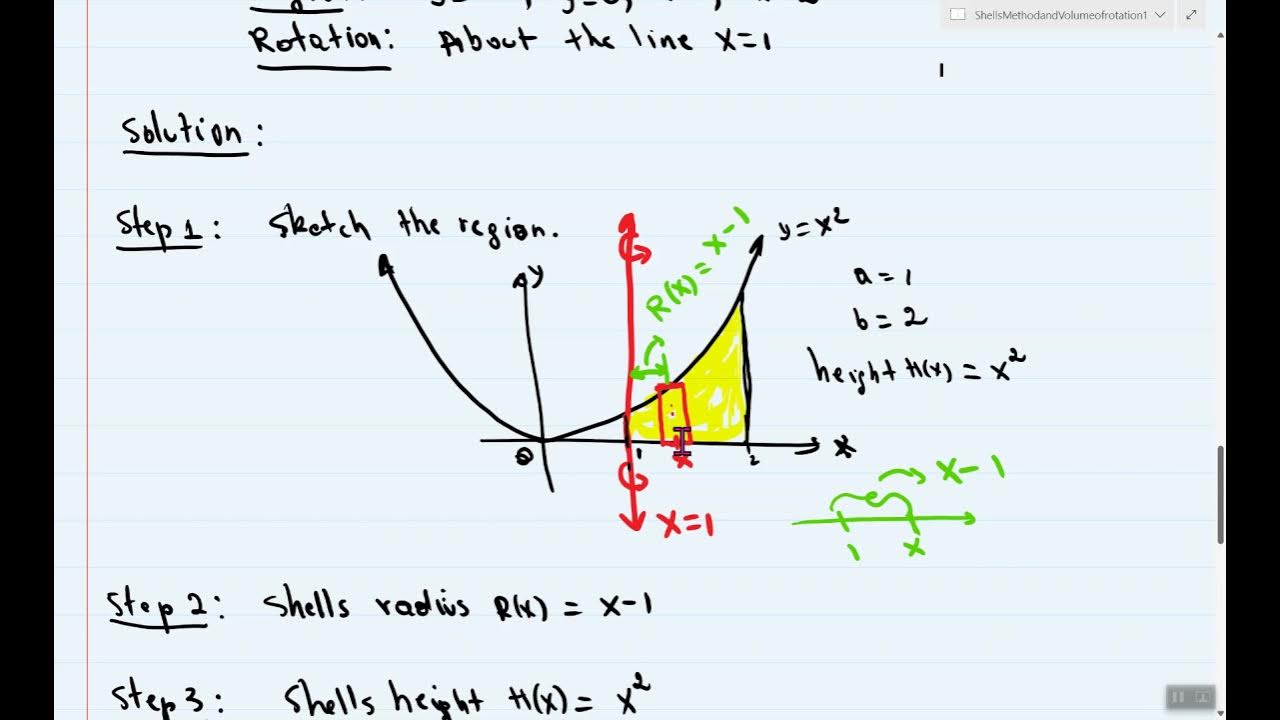 ShellsMethodandVolumeofrotation1
Rotation: About the line x=1
Solution:
Step 1: Sketch the region.
R(x) = x-1
y = x²
y
a = 1
b = 2
height H(x) = x²
0
1
x
2
x
x=1
x-1
1
x
Step 2: Shells radius R(x) = x-1
Step 3: Shells height H(x) = x²